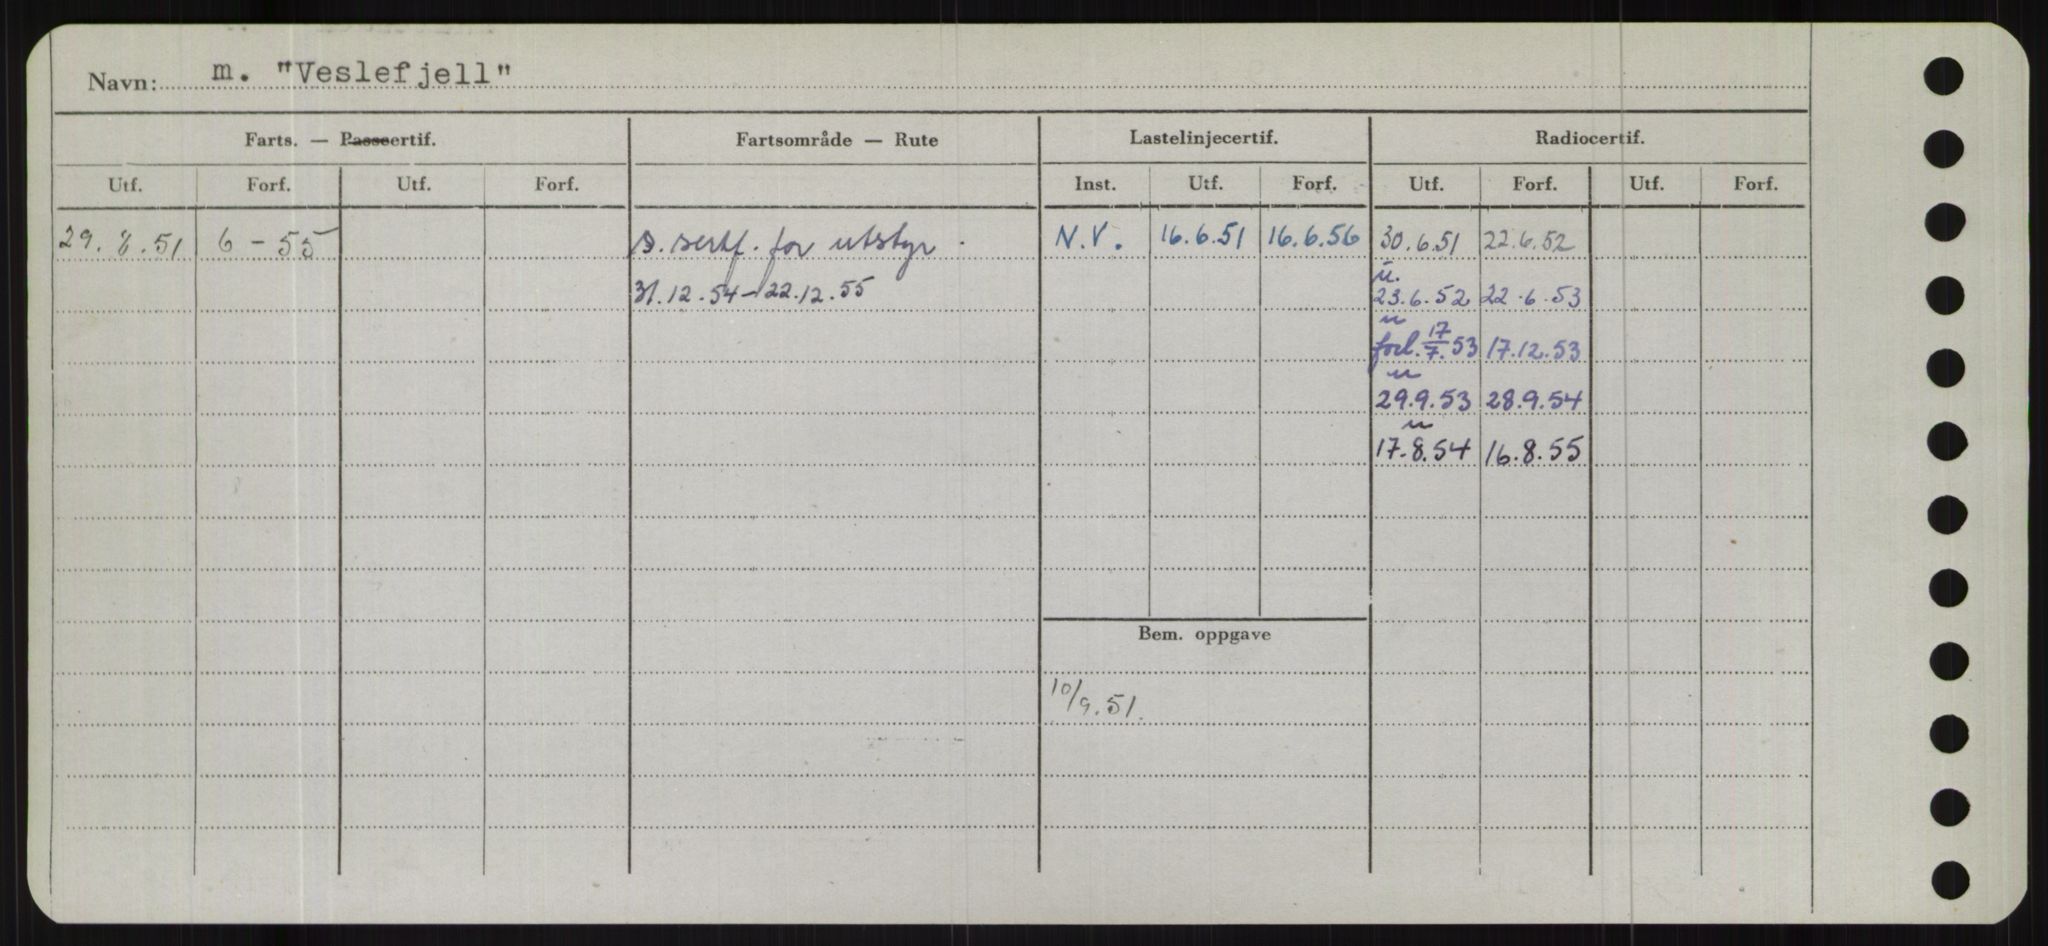 Navn: m. "Veslefjell"
Farts. — Passcertif. Fartsområde — Rute Lastelinjecertif. Radiocertif.
Utf. Forf. Utf. Forf. Inst. Utf. Forf. Utf. Forf. Utf. Forf.
29.8.51 6-55 S. sertf. for utstyr. N.V. 16.6.51 16.6.56 30.6.51 22.6.52
31.12.54-22.12.55 23.6.52 22.6.53
forl. 17/7.53 17.12.53
29.9.53 28.9.54
17.8.54 16.8.55
Bem. oppgave
10/9.51.